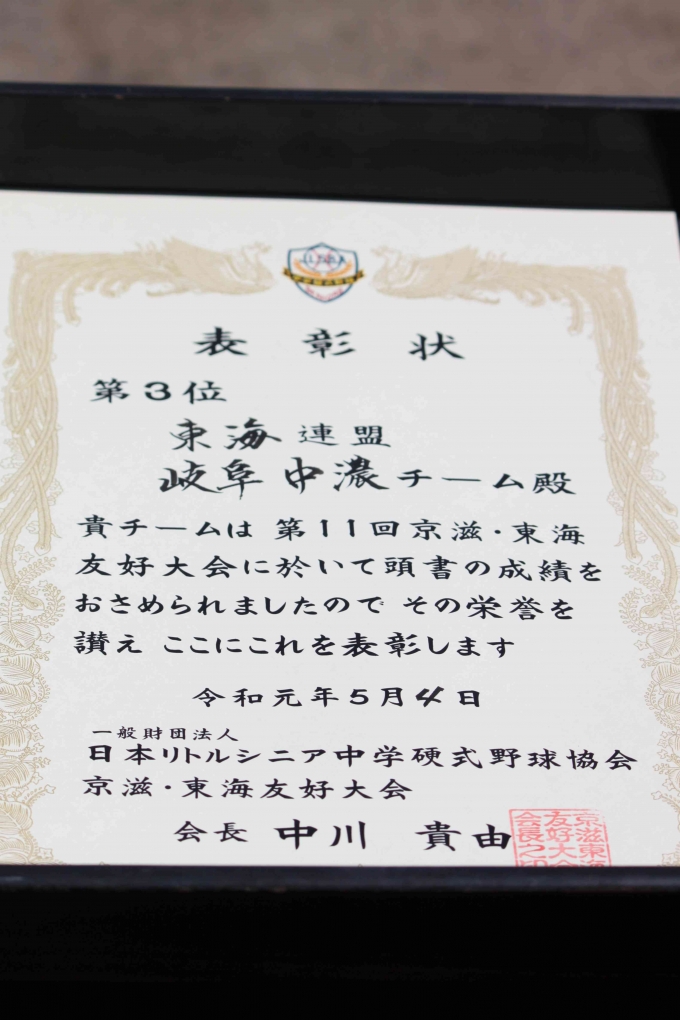 表彰状
第3位
東海連盟
岐阜中濃チーム殿
貴チームは 第11回京滋・東海
友好大会に於いて頭書の成績を
おさめられましたので その栄誉を
讃え ここにこれを表彰します
令和元年5月4日
一般財団法人
日本リトルシニア中学硬式野球協会
京滋・東海友好大会
会長 中川 貴由
京滋東海
友好大会
会長之印